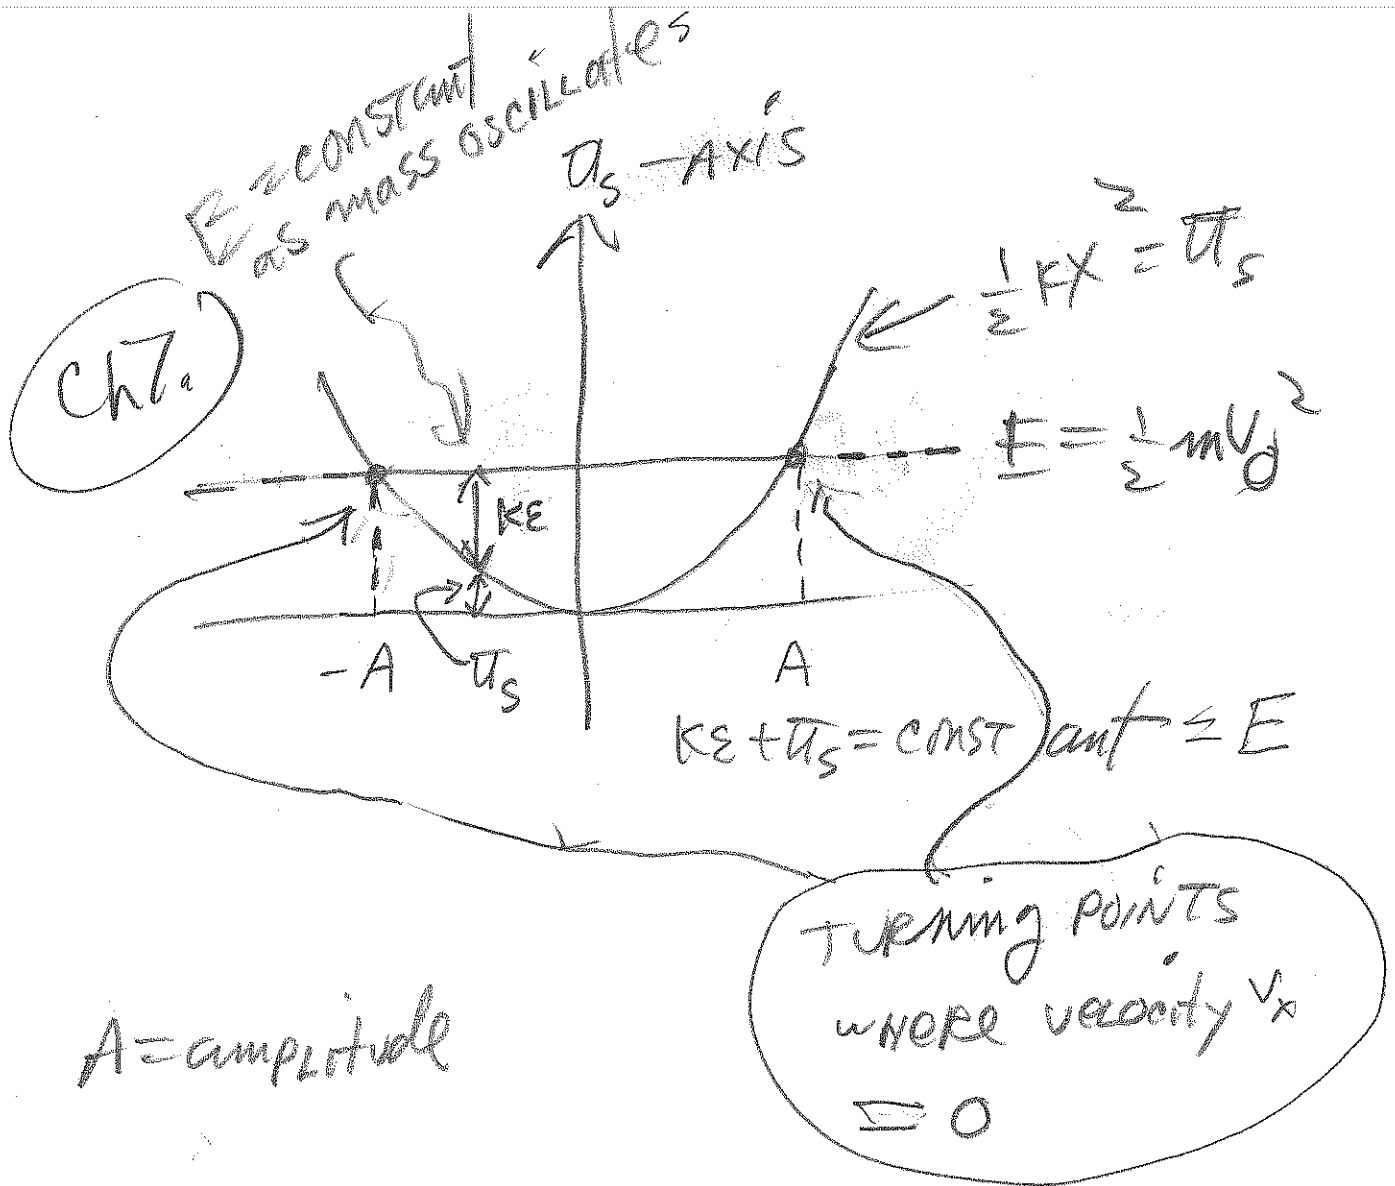 E = constant
as mass oscillates
U_s - Axis
½ kx² = U_s
Ch7.
E = ½ mv₀²
KE
-A
U_s
A
KE + U_s = constant = E
TURNING POINTS
WHERE velocity v_x
= 0
A = amplitude